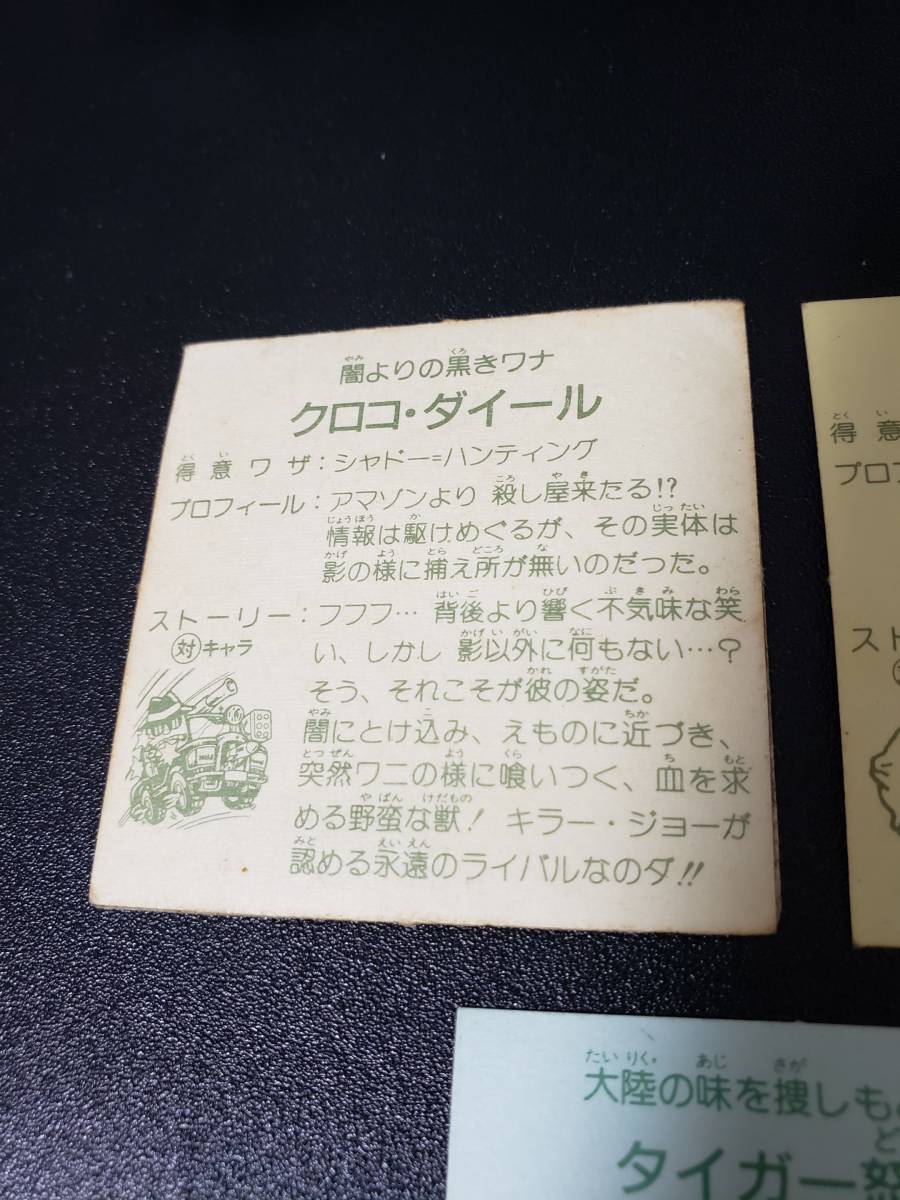 闇よりの黒きワナ
クロコ・ダイール
得意ワザ：シャドー=ハンティング
プロフィール：アマゾンより 殺し屋来たる!?
情報は駆けめぐるが、その実体は
影の様に捕え所が無いのだった。
ストーリー：フフフ… 背後より響く不気味な笑
対キャラ
い、しかし 影以外に何もない…?
そう、それこそが彼の姿だ。
闇にとけ込み、えものに近づき、
突然ワニの様に喰いつく、血を求
める野蛮な獣! キラー・ジョーが
認める永遠のライバルなのダ!!
得意
プロフ
スト
大陸の味を捜しも
タイガー怒